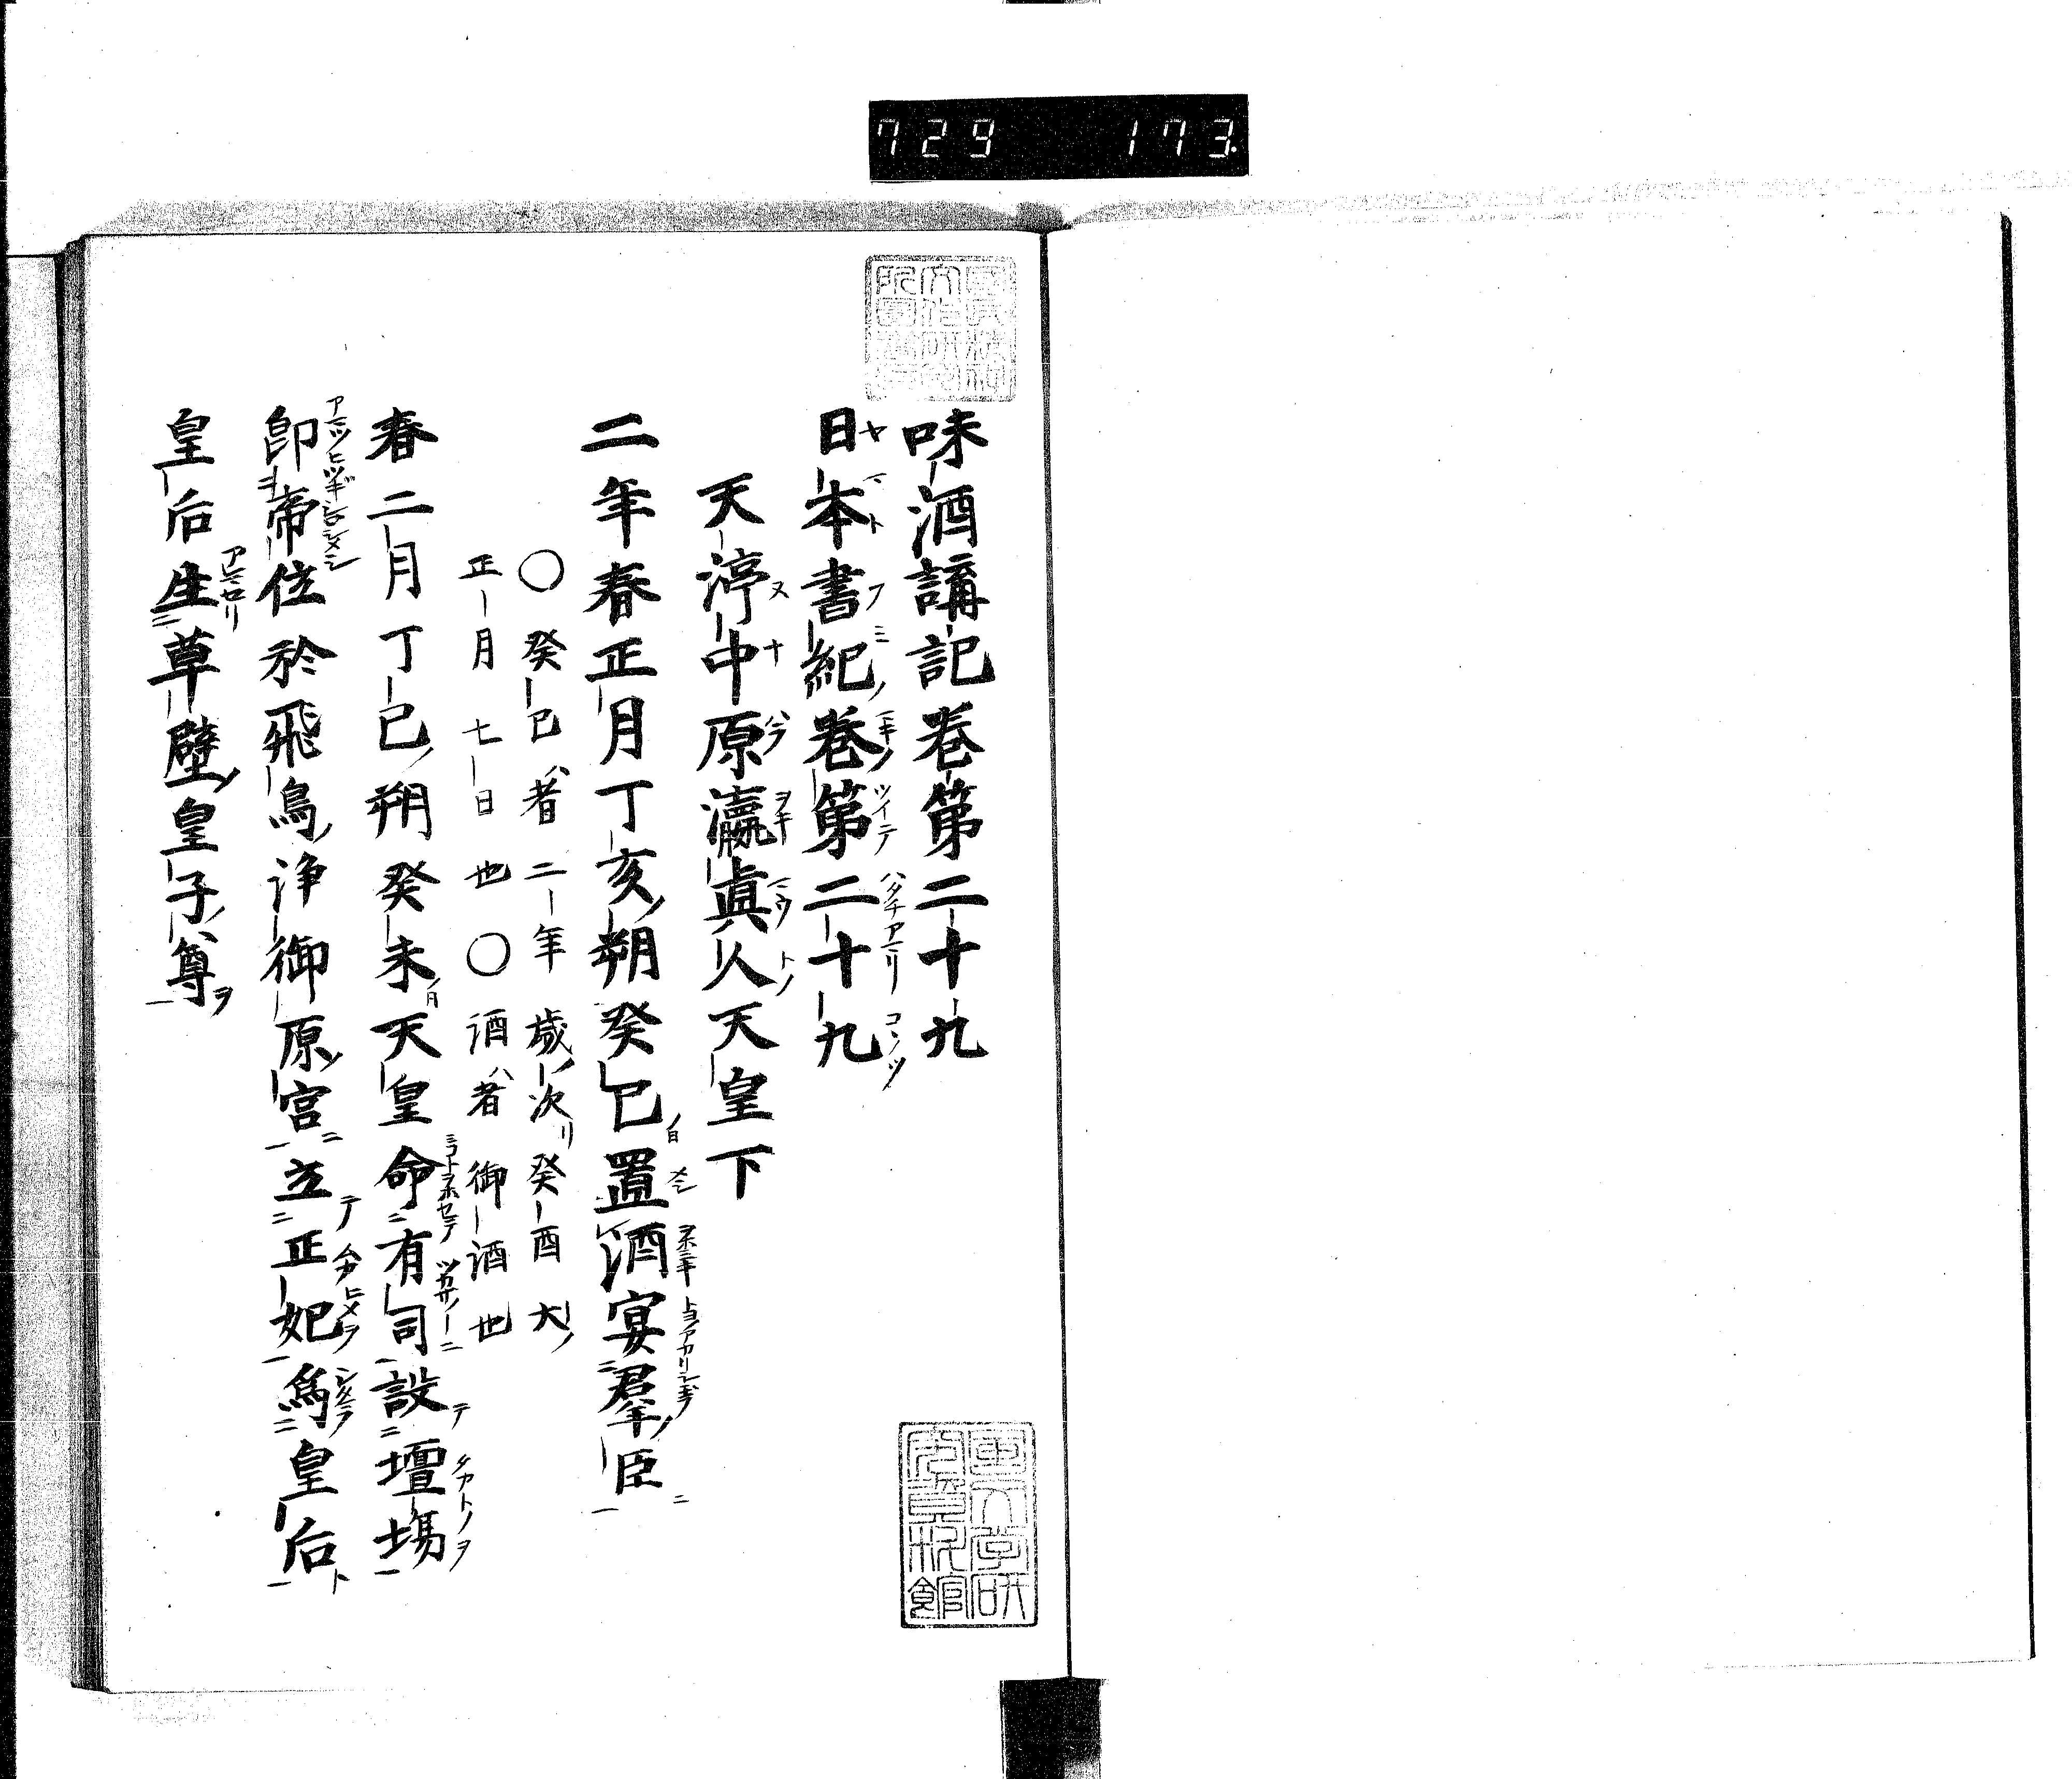 729 173.
味酒講記卷第二十九
日本書紀卷第二十九
天渟中原瀛眞人天皇下
二年春正月丁亥朔癸巳置酒宴羣臣
○癸巳者二年歳次癸酉大
正月七日也○酒者御酒也
春二月丁巳朔癸未天皇命有司設壇場
卽帝位於飛鳥浄御原宮立正妃爲皇后
皇后生草壁皇子尊